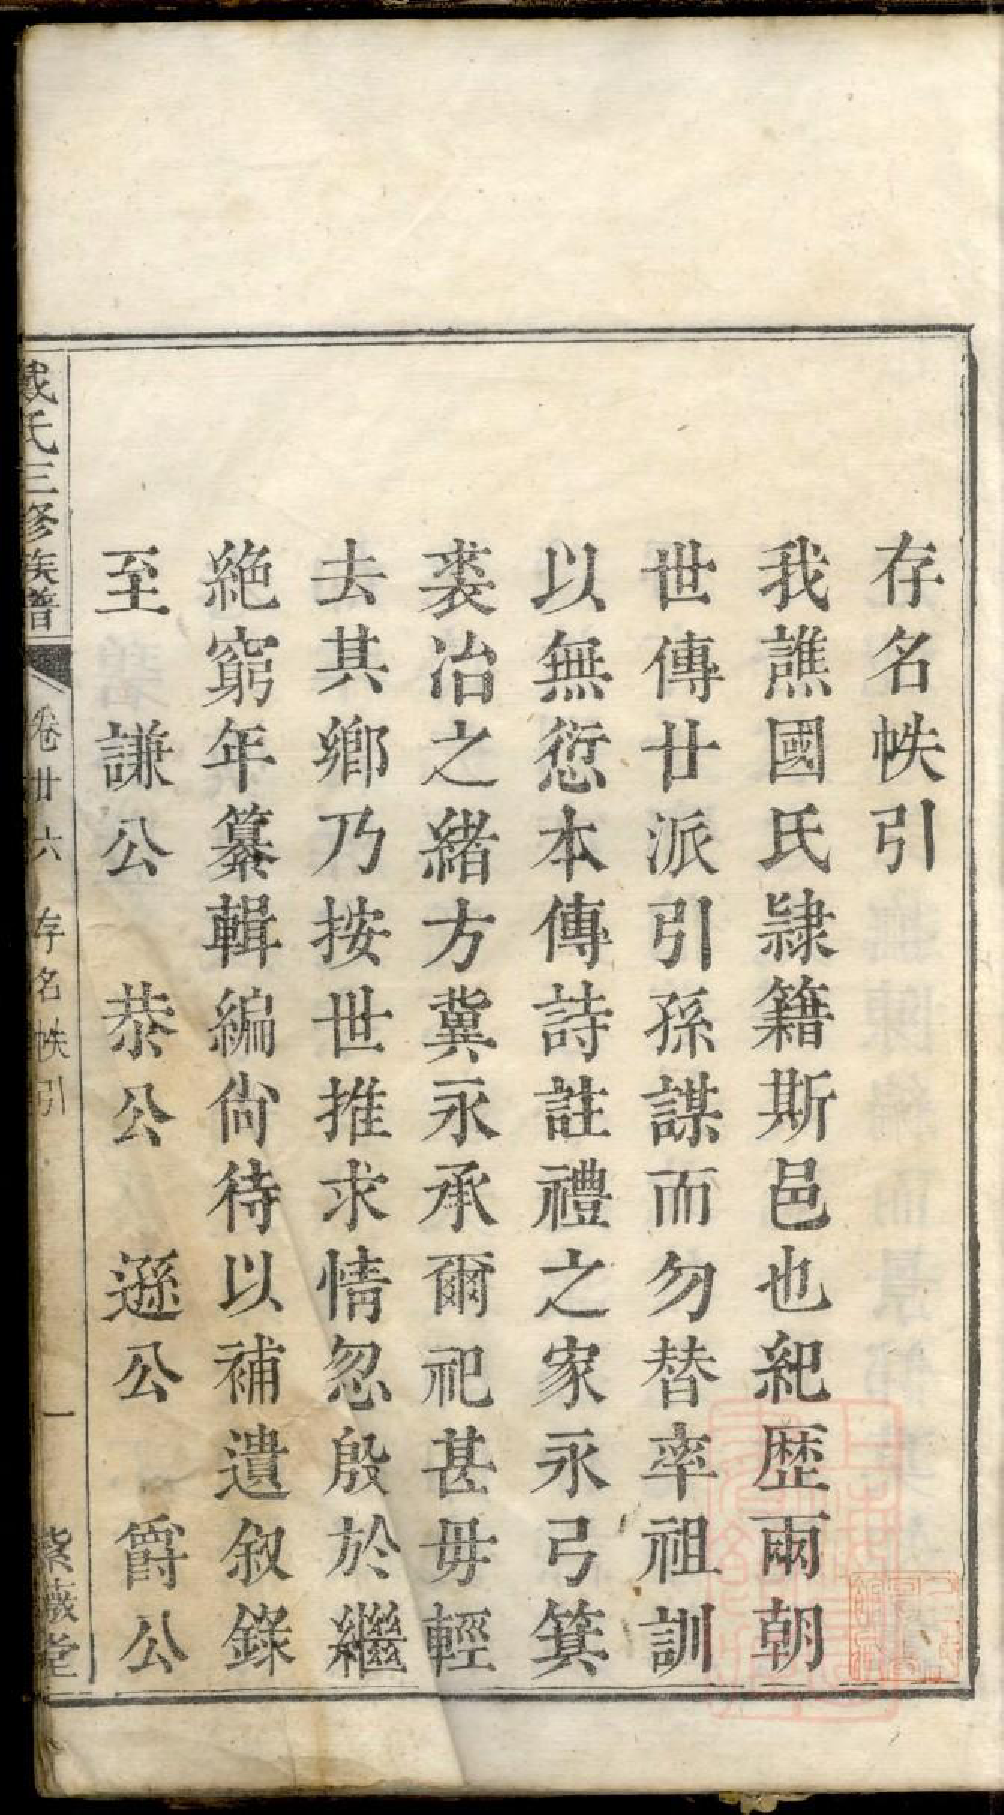 存名帙引
我譙國氏隷籍斯邑也紀歴兩朝
世傳廿派引孫謀而勿替率祖訓
以無愆本傳詩註禮之家永弓箕
裘冶之緒方冀永承爾祀甚毋輕
去其鄉乃按世推求情忽殷於繼
絶窮年纂輯編尙待以補遺敘錄
至　謙公　恭公　遜公　爵公
戴氏三修族譜　卷廿六　存名帙引　一　紫薇堂